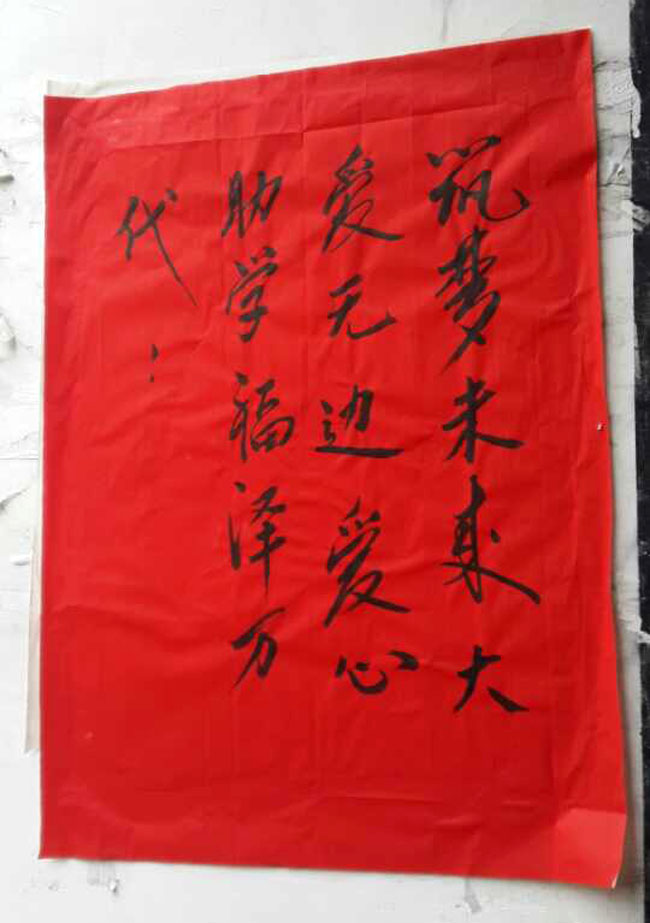 筑梦未来大
爱无边爱心
助学福泽万
代：